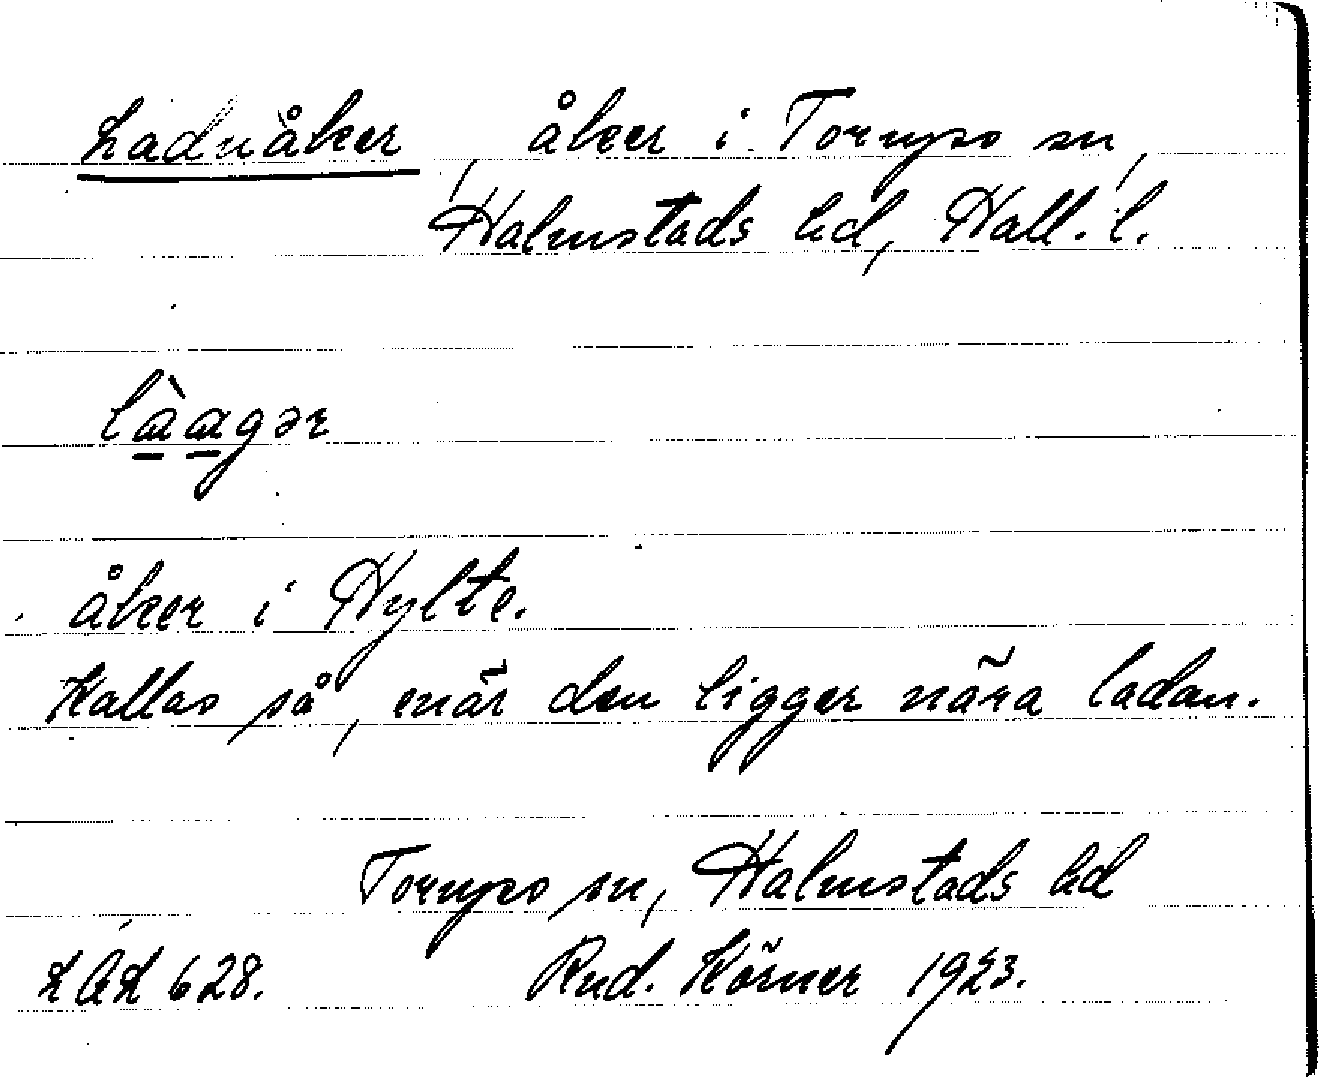 Ladnåker, åker i Torups sn,
Halmstads hd, Hall. l.
làagər
åker i Hylte.
Kallas så, enär den ligger nära ladan.
Torups sn, Halmstads hd
LAL 628. Rud. Körner 1923.